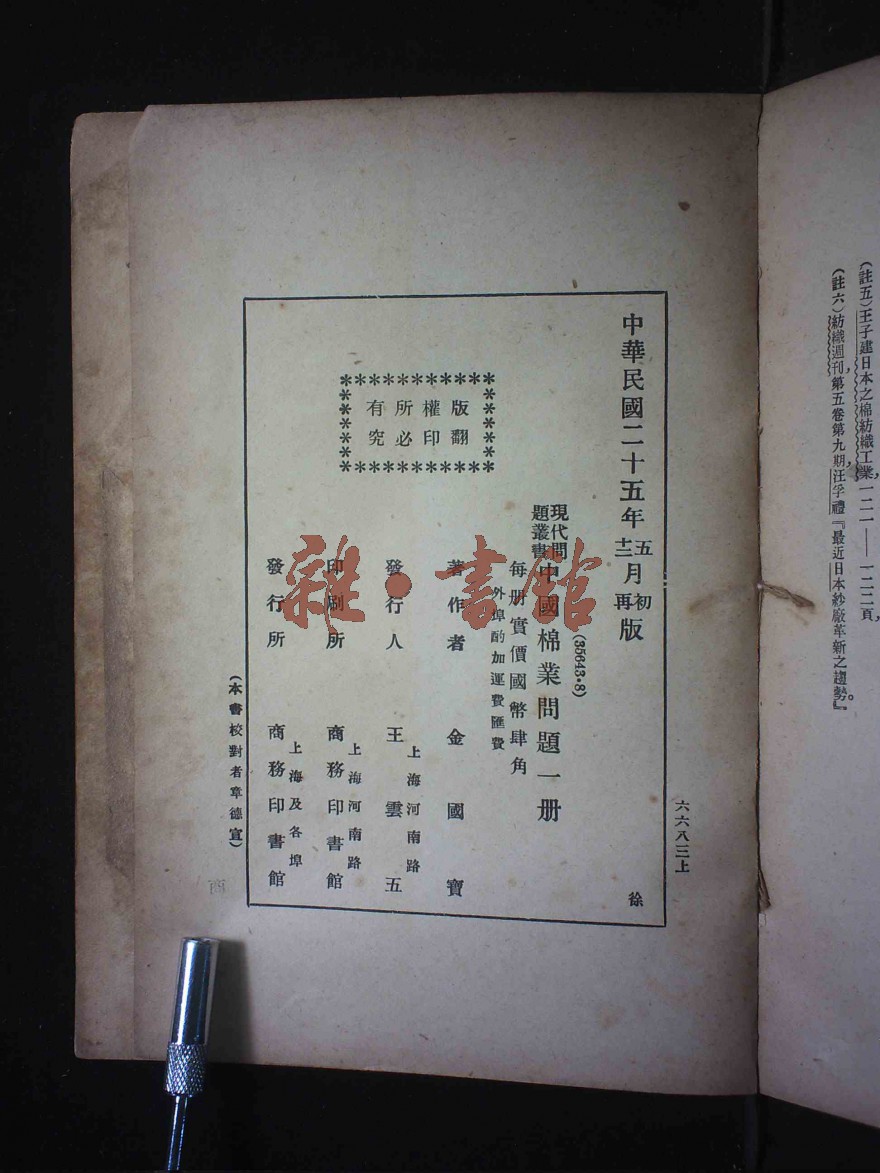 (註五)王子建日本之棉紡織工業,一二一——一二二頁,
(註六)紡織週刊,第五卷第九期,汪孚禮『最近日本紗廠革新之趨勢。』
六六八三上
中華民國二十五年五月初版
十二月再版
徐
(35643·8)
現代問題叢書 中國棉業問題一册
每册實價國幣肆角
外埠酌加運費匯費
版權所有
翻印必究
著作者 金國寶
發行人 王雲五
上海河南路
印刷所 商務印書館
上海河南路
發行所 商務印書館
上海及各埠
(本書校對者章德宣)
雜·書館
商